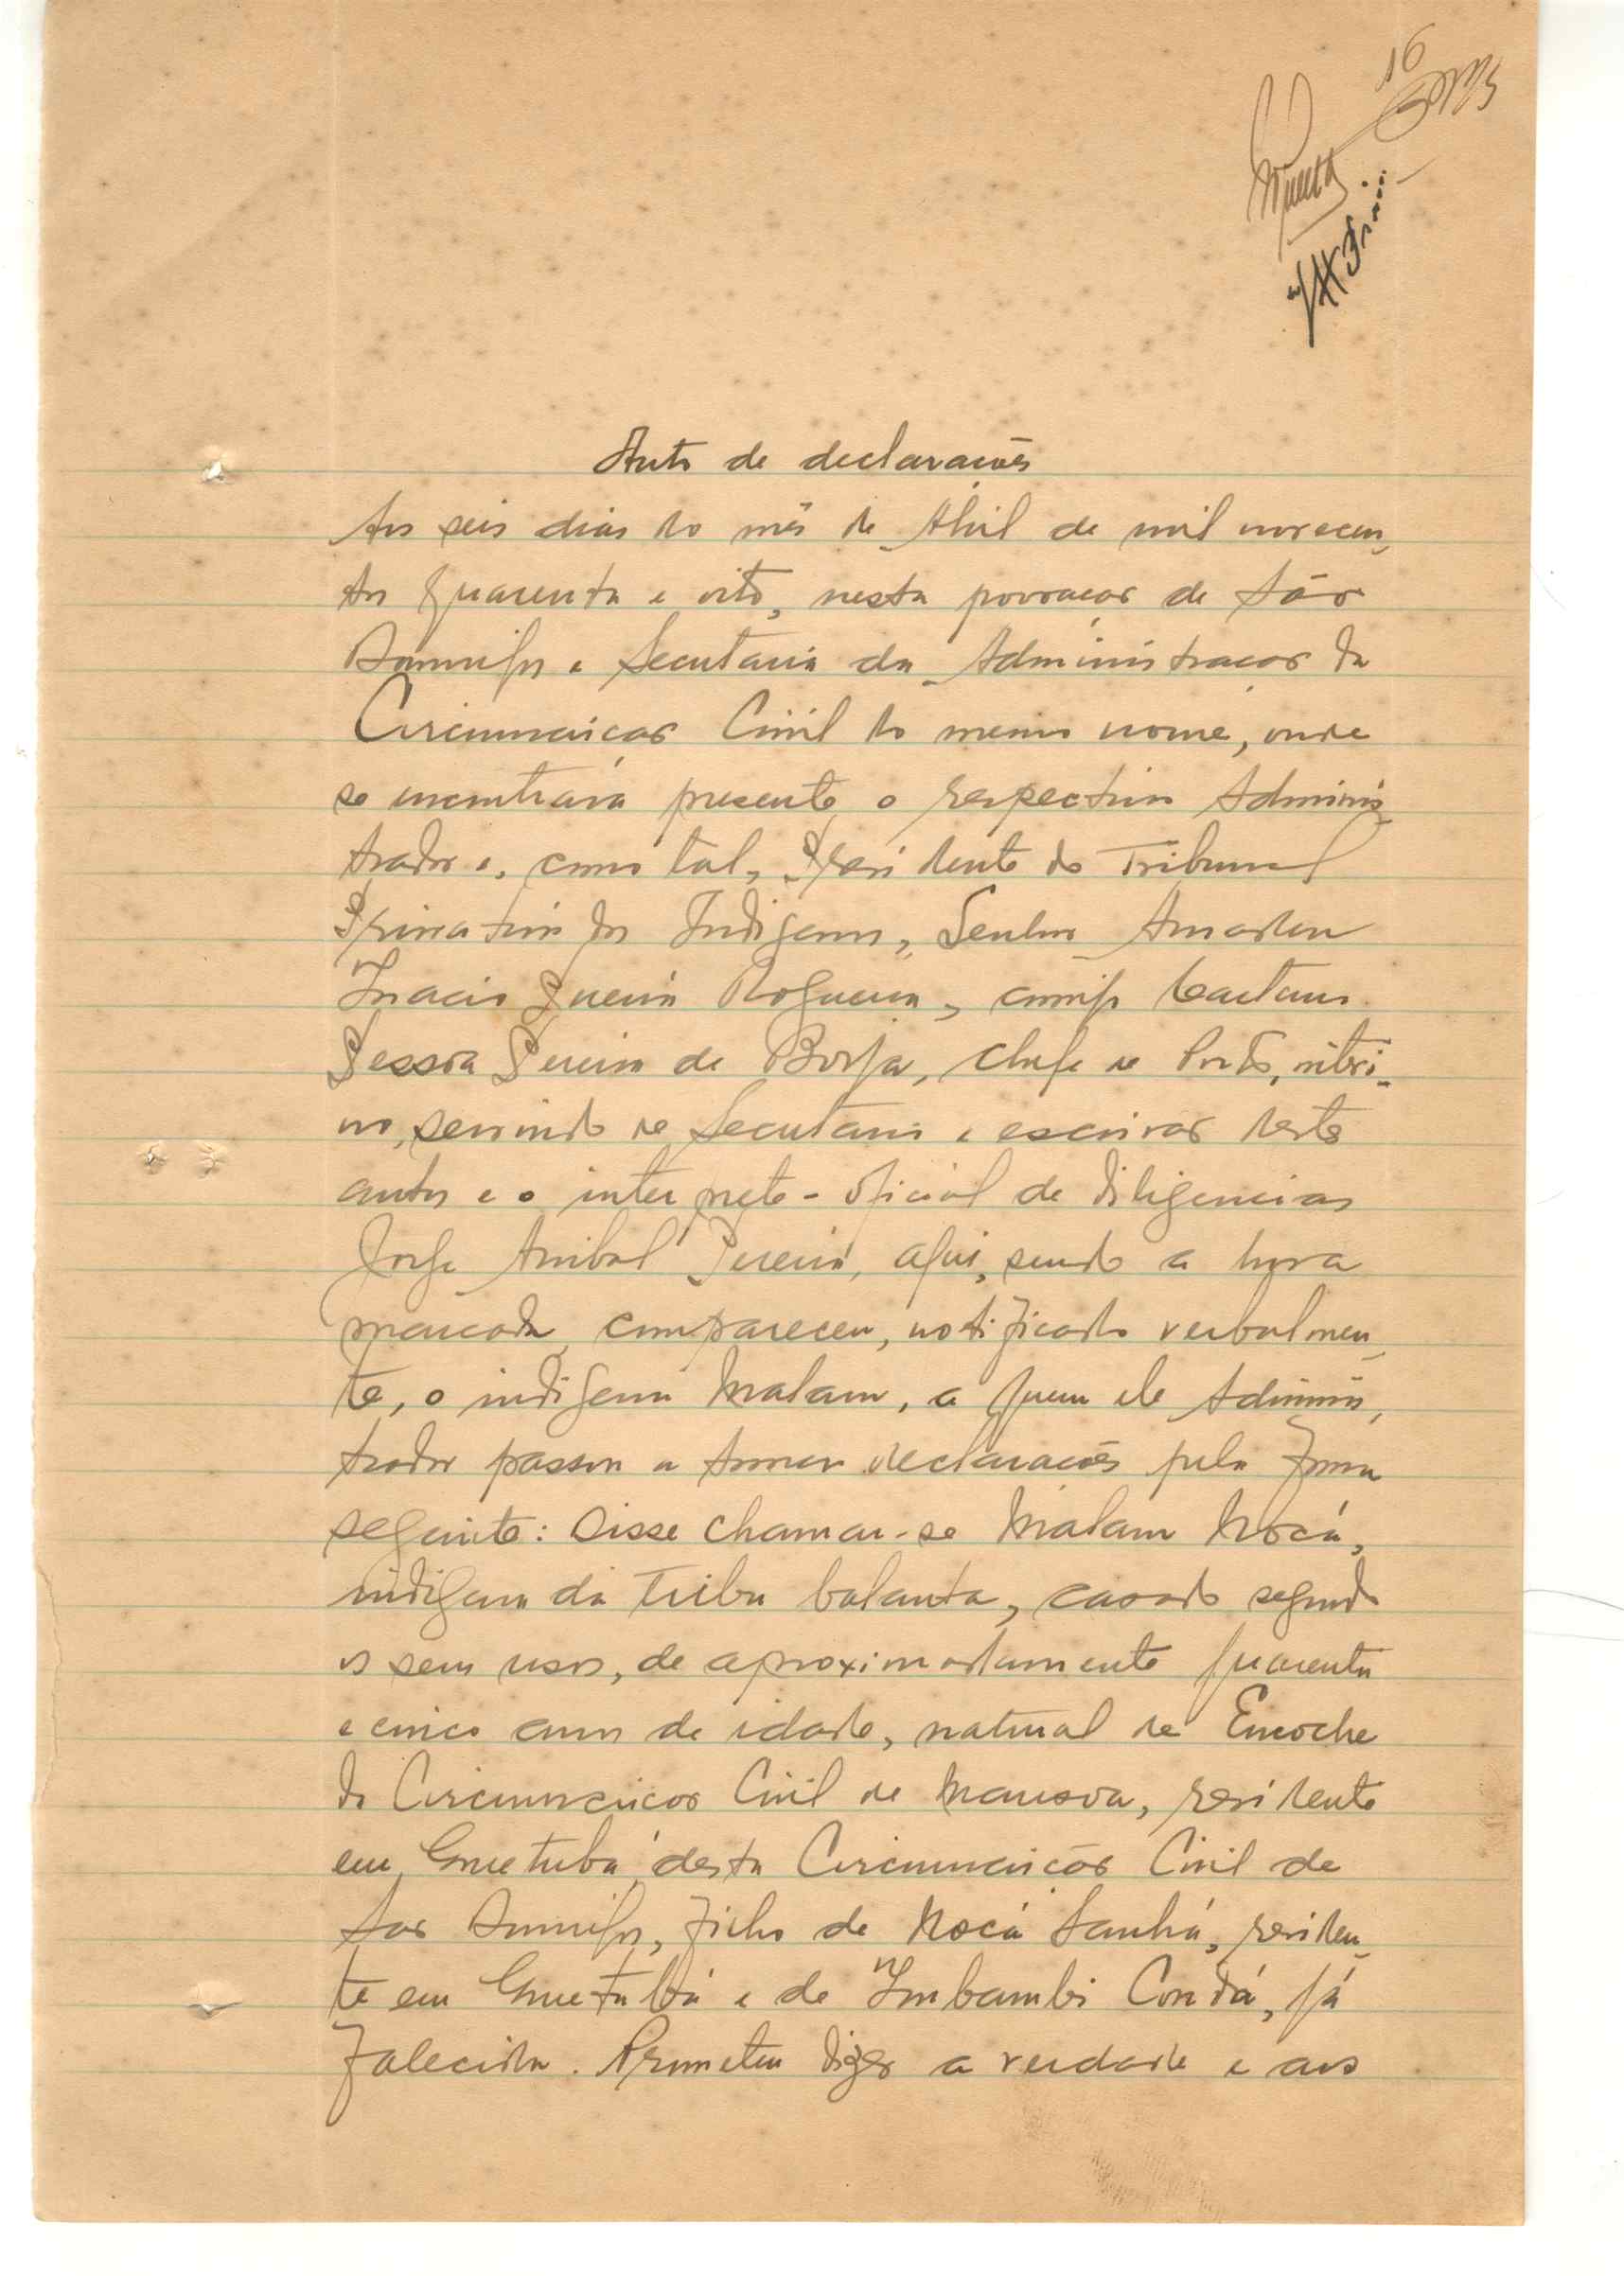 16
Auto de declarações
Aos seis dias do mês de Abril de mil novecen-
tos quarenta e oito, nesta povoação de São
Domingos e Secretaria da Administração da
Circunscrição Civil do mesmo nome, onde
se encontrava presente o respectivo Adminis-
trador e, como tal, Presidente do Tribunal
Privativo dos Indigenas, Senhor Amadeu
Inacio Pereira Nogueira, comigo Caetano
Pessoa Pereira de Borja, chefe de Posto, interi-
no, servindo de Secretario e escrivão deste
autos e o interprete-oficial de diligencias
Jorge Anibal Pereira, aqui, sendo a hora
marcada, compareceu, notificado verbalmen-
te, o indigena Malam, a quem ele Adminis-
trador passou a tomar declarações pela forma
seguinte: Disse chamar-se Malam Nocá,
indigena da tribu balanta, casado segundo
os seus usos, de aproximadamente quarenta
e cinco anos de idade, natural de Encoche
da Circunscrição Civil de Mansoa, residente
em Gnetubá, desta Circunscrição Civil de
São Domingos, filho de Nocá Sanhá, residen-
te em Gnetubá e de Imbambi Condá, já
falecida. Prometeu dizer a verdade e aos